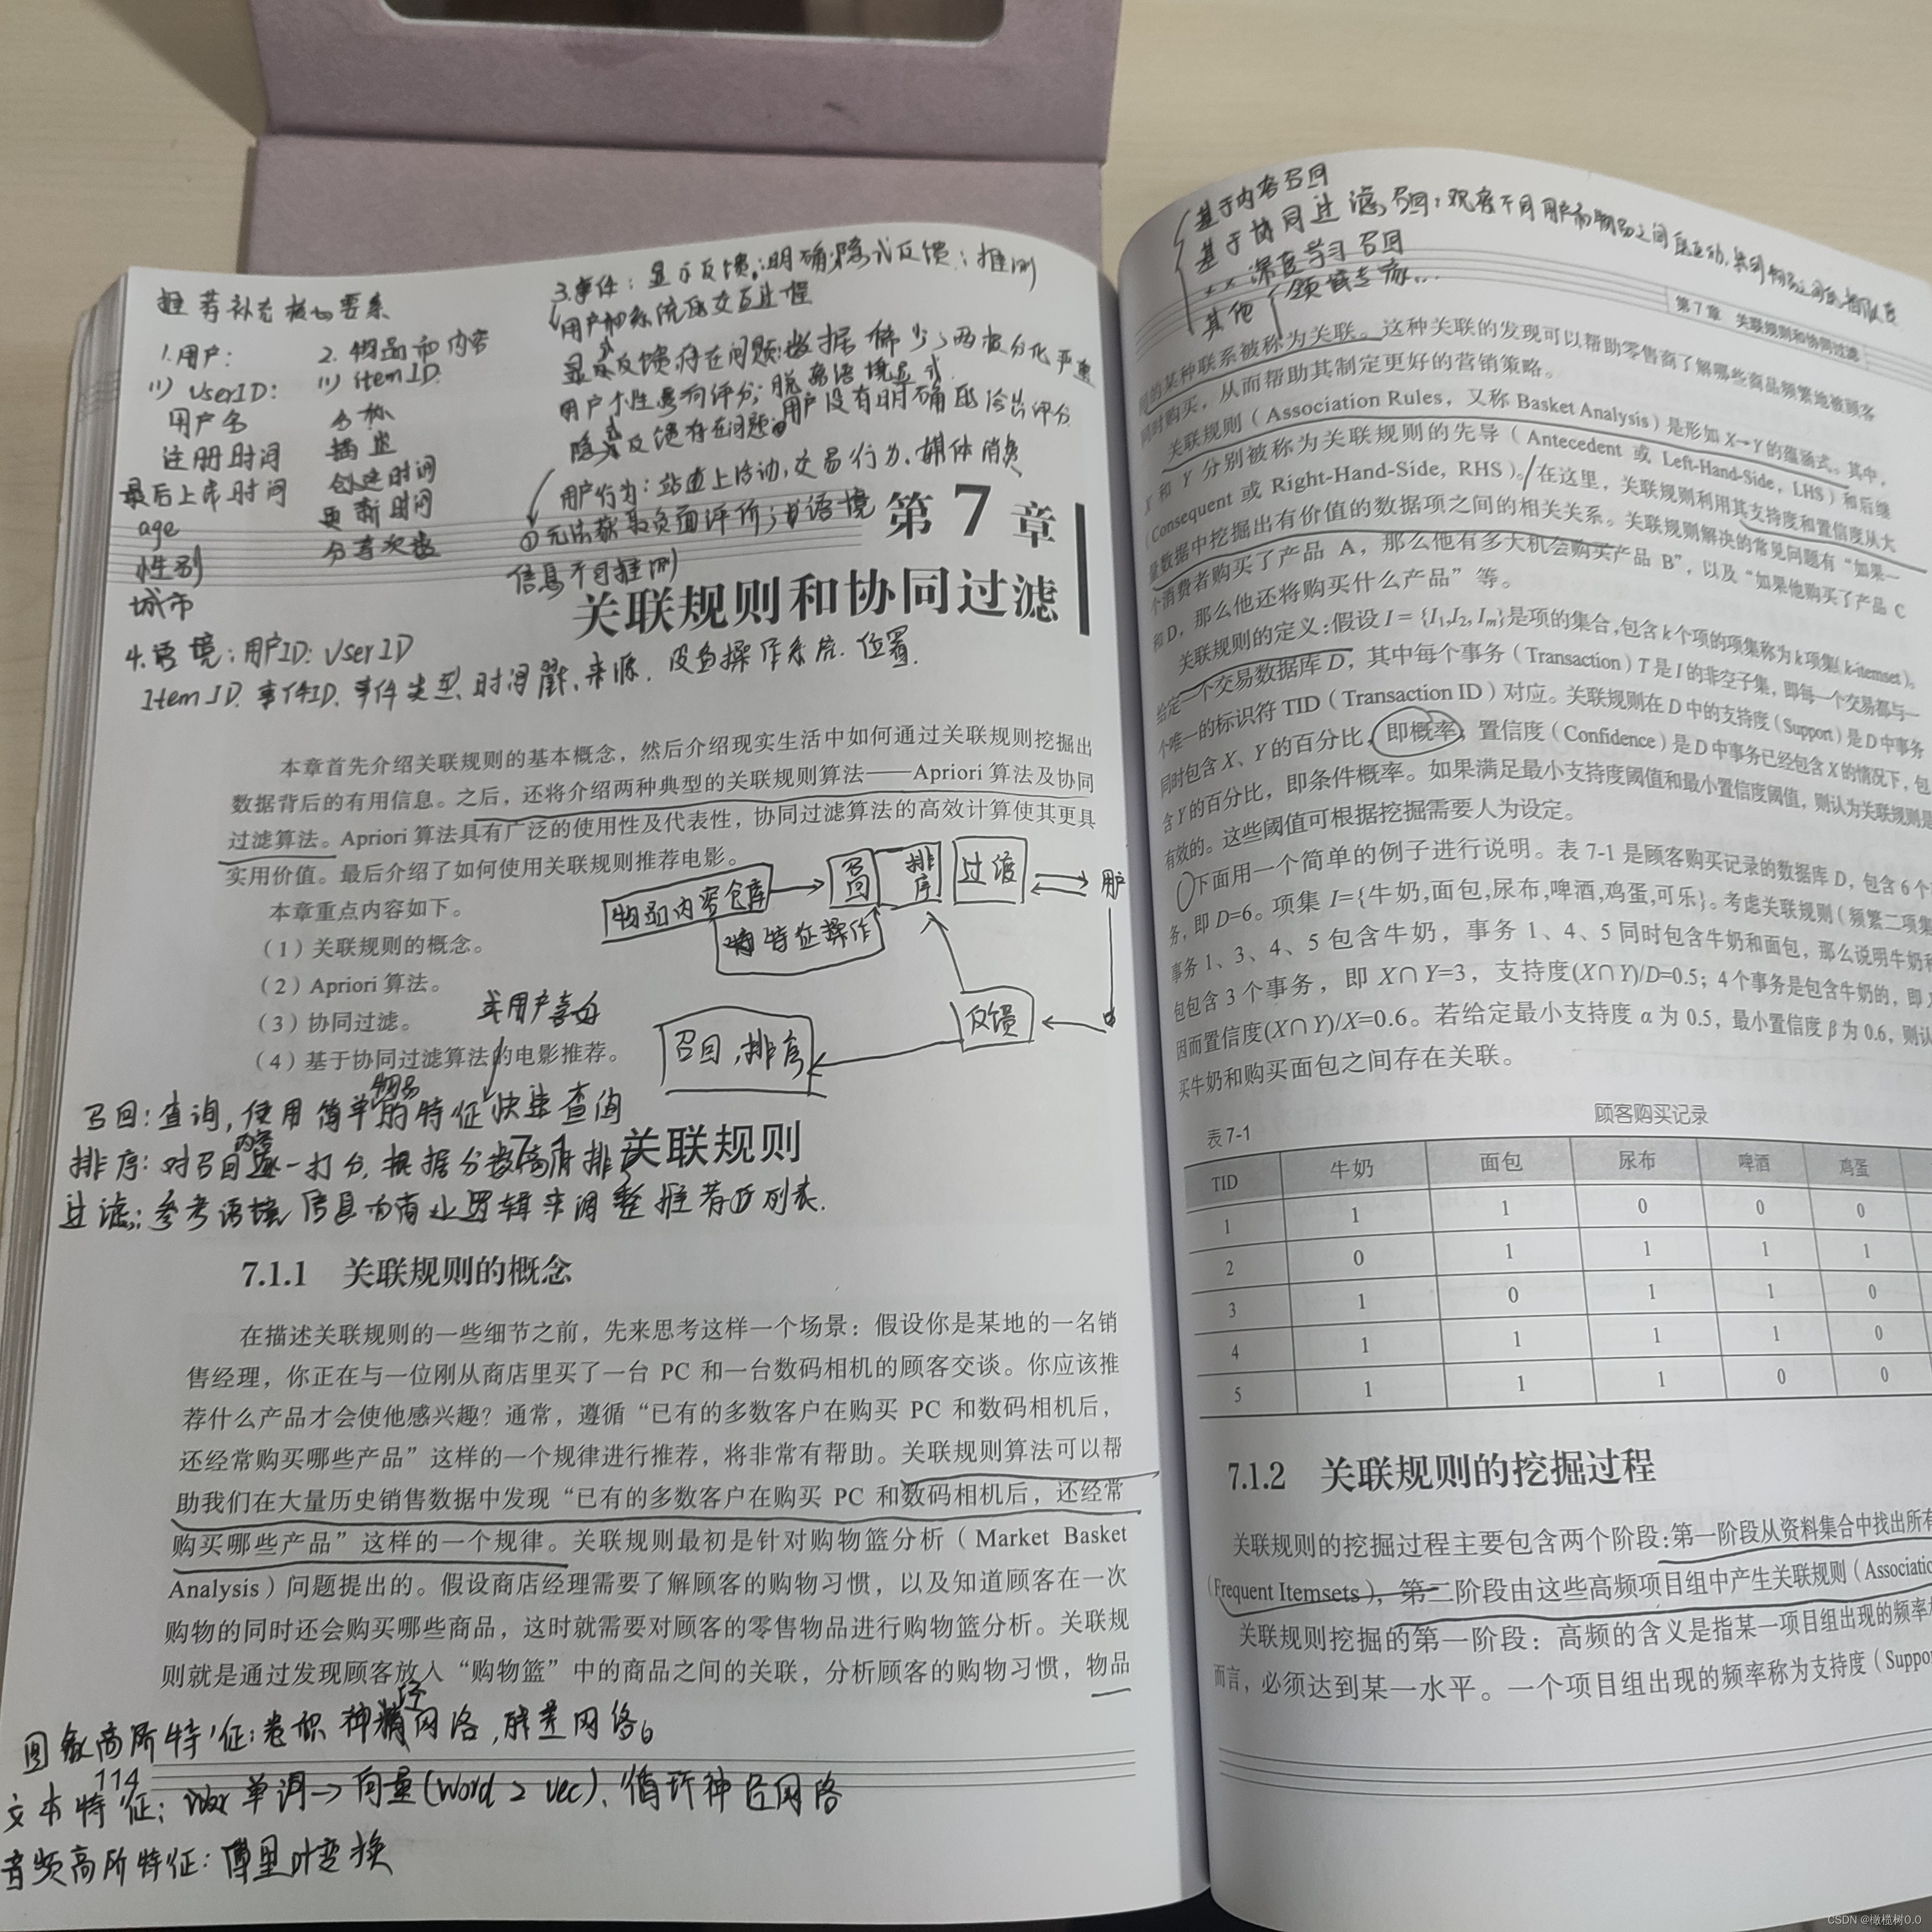 推荐补充核心要素
1.用户:
(1) UserID:
用户名
注册时间
最后上线时间
age
性别
城市
2. 物品和内容
(1) itemID.
名称
描述
创建时间
更新时间
分享次数
3.事件: 显示反馈:明确;隐式反馈:推测
用户和系统的交互过程
显式反馈存在问题:数据稀少,两极分化严重
用户个性影响评分;脱离语境显式
隐式反馈存在问题:用户没有明确的给出评分
用户行为:站点上活动,交易行为、媒体消费
①无法获取负面评价;语境
信息不可推测
第7章
关联规则和协同过滤
4.语境:用户ID: UserID
ItemID. 事件ID. 事件类型、时间戳、来源、设备操作系统.位置.
本章首先介绍关联规则的基本概念,然后介绍现实生活中如何通过关联规则挖掘出
数据背后的有用信息。之后,还将介绍两种典型的关联规则算法——Apriori 算法及协同
过滤算法。Apriori 算法具有广泛的使用性及代表性,协同过滤算法的高效计算使其更具
实用价值。最后介绍了如何使用关联规则推荐电影。
本章重点内容如下。
(1)关联规则的概念。
(2)Apriori 算法。
(3)协同过滤。
(4)基于协同过滤算法的电影推荐。
物品内容仓库
召回
排序
过滤
用户
特征操作
反馈
召回,排序
或用户喜好
物品
召回:查询,使用简单的特征快速查询
7.1 关联规则
内容
排序:对召回逐一打分,根据分数高低排序
过滤:参考语境信息和商业逻辑来调整推荐的列表.
7.1.1 关联规则的概念
在描述关联规则的一些细节之前,先来思考这样一个场景:假设你是某地的一名销
售经理,你正在与一位刚从商店里买了一台 PC 和一台数码相机的顾客交谈。你应该推
荐什么产品才会使他感兴趣?通常,遵循“已有的多数客户在购买 PC 和数码相机后,
还经常购买哪些产品”这样的一个规律进行推荐,将非常有帮助。关联规则算法可以帮
助我们在大量历史销售数据中发现“已有的多数客户在购买 PC 和数码相机后,还经常
购买哪些产品”这样的一个规律。关联规则最初是针对购物篮分析(Market Basket
Analysis)问题提出的。假设商店经理需要了解顾客的购物习惯,以及知道顾客在一次
购物的同时还会购买哪些商品,这时就需要对顾客的零售物品进行购物篮分析。关联规
则就是通过发现顾客放入“购物篮”中的商品之间的关联,分析顾客的购物习惯,物品
图像高阶特征:卷积神经网络,残差网络。
114
文本特征: 单词→向量(Word 2 Vec)、循环神经网络
音频高阶特征:傅里叶变换
基于内容召回
基于协同过滤召回:观察不同用户和物品之间的互动,
深度学习召回
其他
领域专家...
第7章 关联规则和协同过滤
间的某种联系被称为关联。这种关联的发现可以帮助零售商了解哪些商品频繁地被顾客
同时购买,从而帮助其制定更好的营销策略。
关联规则(Association Rules,又称 Basket Analysis)是形如 X→Y 的蕴涵式。其中,
X 和 Y 分别被称为关联规则的先导(Antecedent 或 Left-Hand-Side, LHS)和后继
(Consequent 或 Right-Hand-Side, RHS)。在这里,关联规则利用其支持度和置信度从大
量数据中挖掘出有价值的数据项之间的相关关系。关联规则解决的常见问题有“如果一
个消费者购买了产品 A,那么他有多大机会购买产品 B”,以及“如果他购买了产品 C
和 D,那么他还将购买什么产品”等。
关联规则的定义:假设 I = {I1,I2, Im}是项的集合,包含 k 个项的项集称为 k 项集(k-itemset)。
给定一个交易数据库 D,其中每个事务(Transaction)T 是 I 的非空子集,即每一个交易都与一
个唯一的标识符 TID(Transaction ID)对应。关联规则在 D 中的支持度(Support)是 D 中事务
同时包含 X、Y 的百分比,即概率,置信度(Confidence)是 D 中事务已经包含 X 的情况下,包
含 Y 的百分比,即条件概率。如果满足最小支持度阈值和最小置信度阈值,则认为关联规则是
有效的。这些阈值可根据挖掘需要人为设定。
下面用一个简单的例子进行说明。表 7-1 是顾客购买记录的数据库 D,包含 6 个
务,即 D=6。项集 I={牛奶,面包,尿布,啤酒,鸡蛋,可乐}。考虑关联规则(频繁二项集
事务 1、3、4、5 包含牛奶,事务 1、4、5 同时包含牛奶和面包,那么说明牛奶和
包包含 3 个事务,即 X∩Y=3,支持度(X∩Y)/D=0.5;4 个事务是包含牛奶的,即
因而置信度(X∩Y)/X=0.6。若给定最小支持度 α 为 0.5,最小置信度 β 为 0.6,则认
买牛奶和购买面包之间存在关联。
表 7-1 顾客购买记录
TID 牛奶 面包 尿布 啤酒 鸡蛋
1 1 1 0 0 0
2 0 1 1 1 1
3 1 0 1 1 0
4 1 1 1 1 0
5 1 1 1 0 0
7.1.2 关联规则的挖掘过程
关联规则的挖掘过程主要包含两个阶段:第一阶段从资料集合中找出所有
(Frequent Itemsets),第二阶段由这些高频项目组中产生关联规则(Associatio
关联规则挖掘的第一阶段:高频的含义是指某一项目组出现的频率
而言,必须达到某一水平。一个项目组出现的频率称为支持度(Suppor
CSDN @橄榄树0.0